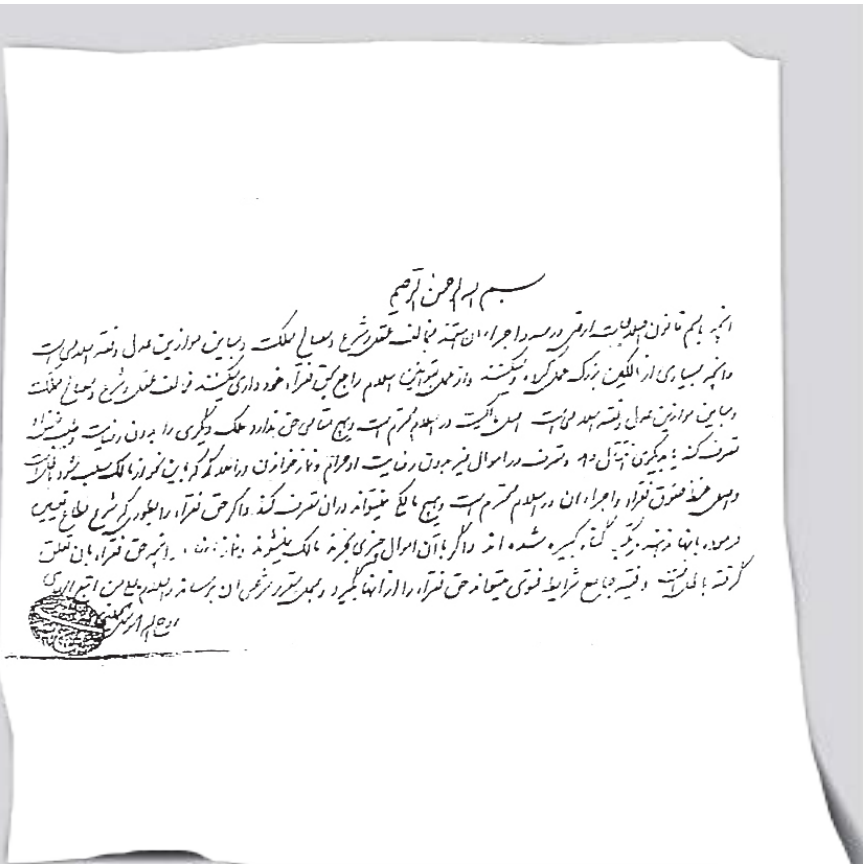 بسم الله الرحمن الرحیم
آنچه باسم قانون اصلاحات ارضی در مسه و اجراء ان مخالف عقل و شرع و مصالح مملکت و مباین موازین عدل و فقه اسلامی است
و آنچه بسیاری از مالکین بزرگ عمل کرده و میکنند و از عمل بقوانین اسلام راجع بحق فقراء خود داری میکنند مخالف عقل و شرع و مصالح مملکت
و مباین موازین عدل و فقه اسلامی است اصل مالکیت در اسلام محترم است و هیچ مقامی حق ندارد ملک دیگری را بدون رضایت و طیب نفس او
تصرف کند یا بدیگری انتقال دهد و تصرف در اموال غیر بدون رضایت او حرام و نماز خواندن در املاکی که باین نحو از مالک سلب شود باطل است
و اصل حفظ حقوق فقراء و اجراء ان در اسلام محترم است و هیچ مالکی نمیتواند در ان تصرف کند و اگر حق فقراء را بطوری که شرع مطاع تعیین
فرموده بانها ندهند مرتکب گناه کبیره شده اند و اگر با آن اموال چیزی بخرند مالک نمیشوند و نماز در آنچه حق فقراء بان تعلق
گرفته باطل است و فقیه جامع شرایط فتوی میتواند حق فقراء را از انها بگیرد و بمحل مقرر شرعی ان برساند والسلام علی من اتبع الهدی
روح الله الموسوی الخمینی